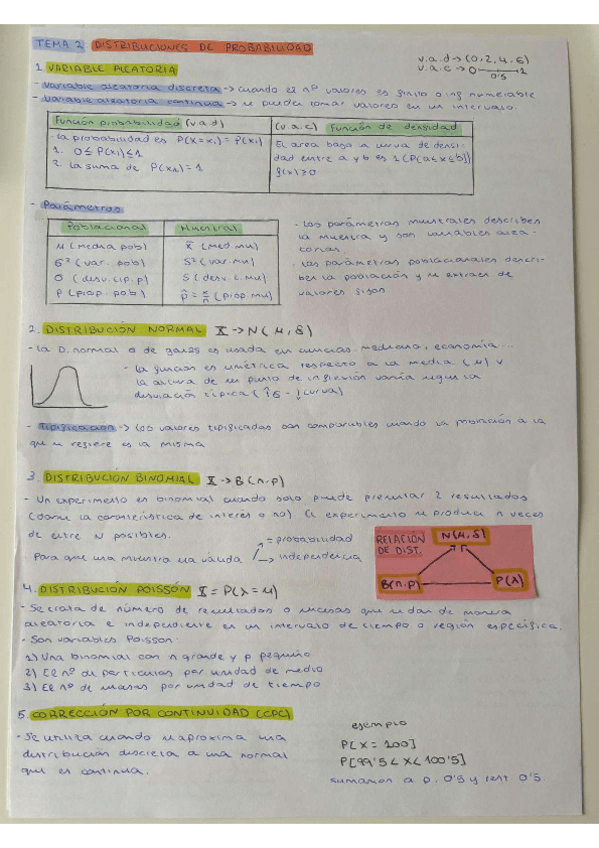 TEMA 2: DISTRIBUCIONES DE PROBABILIDAD
v.a.d → (0, 2, 4, 6)
v.a.c → 0 1
0'5
1. VARIABLE ALEATORIA
- Variable aleatoria discreta → cuando el nº valores es finito o inf numerable
- Variable aleatoria continua → se pueden tomar valores en un intervalo.
Función probabilidad (v.a.d)
(v.a.c) Función de densidad
- La probabilidad es P(X=xi) = P(xi)
1. 0 ≤ P(xi) ≤ 1
2. La suma de P(xi) = 1
El area bajo la curva de densi-
dad entre a y b es 1 (P[a≤x≤b])
f(x) ≥ 0
- Parámetros
Poblacional
Muestral
μ (media pob)
x̄ (med. mu)
σ² (var. pob)
S² (var. mu)
σ (desv. tip. p)
S (desv. t. mu)
P (prop. pob)
p̂ = x/n (prop. mu)
· Los parámetros muestrales describen
la muestra y son variables alea-
torias.
· Los parámetros poblacionales descri-
ben la población y se extraen de
valores fijos.
2. DISTRIBUCIÓN NORMAL X → N(μ, δ)
- La D. normal o de gauss es usada en ciencias, medicina, economía...
- la función es simétrica respecto a la media (μ) y
la altura de su punto de inflexión varía según la
desviación típica (↑σ - ↓curva)
- Tipificación → los valores tipificados son comparables cuando la población a la
que se refiere es la misma
3. DISTRIBUCIÓN BINOMIAL X → B(n, p)
- Un experimento es binomial cuando solo puede presentar 2 resultados
(darse la característica de interés o no). El experimento se produce n veces
de entre N posibles.
Para que una muestra sea válida
= probabilidad
→ independencia
RELACIÓN
DE DIST.
N(μ, δ)
B(n, p)
P(λ)
4. DISTRIBUCIÓN POISSÓN X = P(λ = μ)
- Se trata de número de resultados o sucesos que se dan de manera
aleatoria e independiente en un intervalo de tiempo o región específica.
- Son variables Poisson:
1) Una binomial con n grande y p pequeño
2) El nº de partículas por unidad de medio
3) El nº de sucesos por unidad de tiempo
5. CORRECCIÓN POR CONTINUIDAD (CPC)
- Se utiliza cuando se aproxima una
distribución discreta a una normal
que es continua.
ejemplo
P[X = 100]
P[99'5 < X < 100'5]
sumamos a p. 0'5 y rest 0'5.